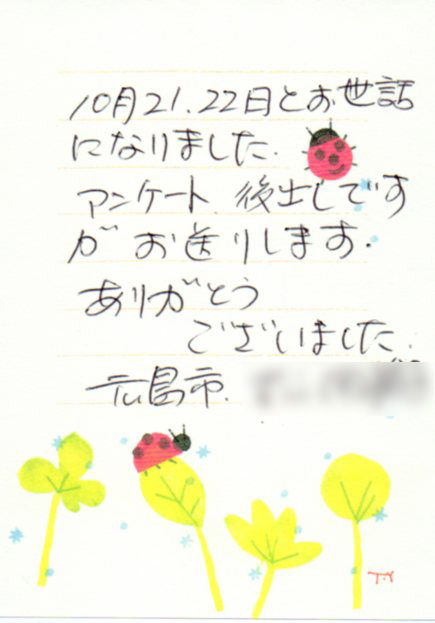 10月21.22日とお世話
になりました.
アンケート、後出しです
が お送りします.
ありがとう
ございました.
広島市.
T.Y